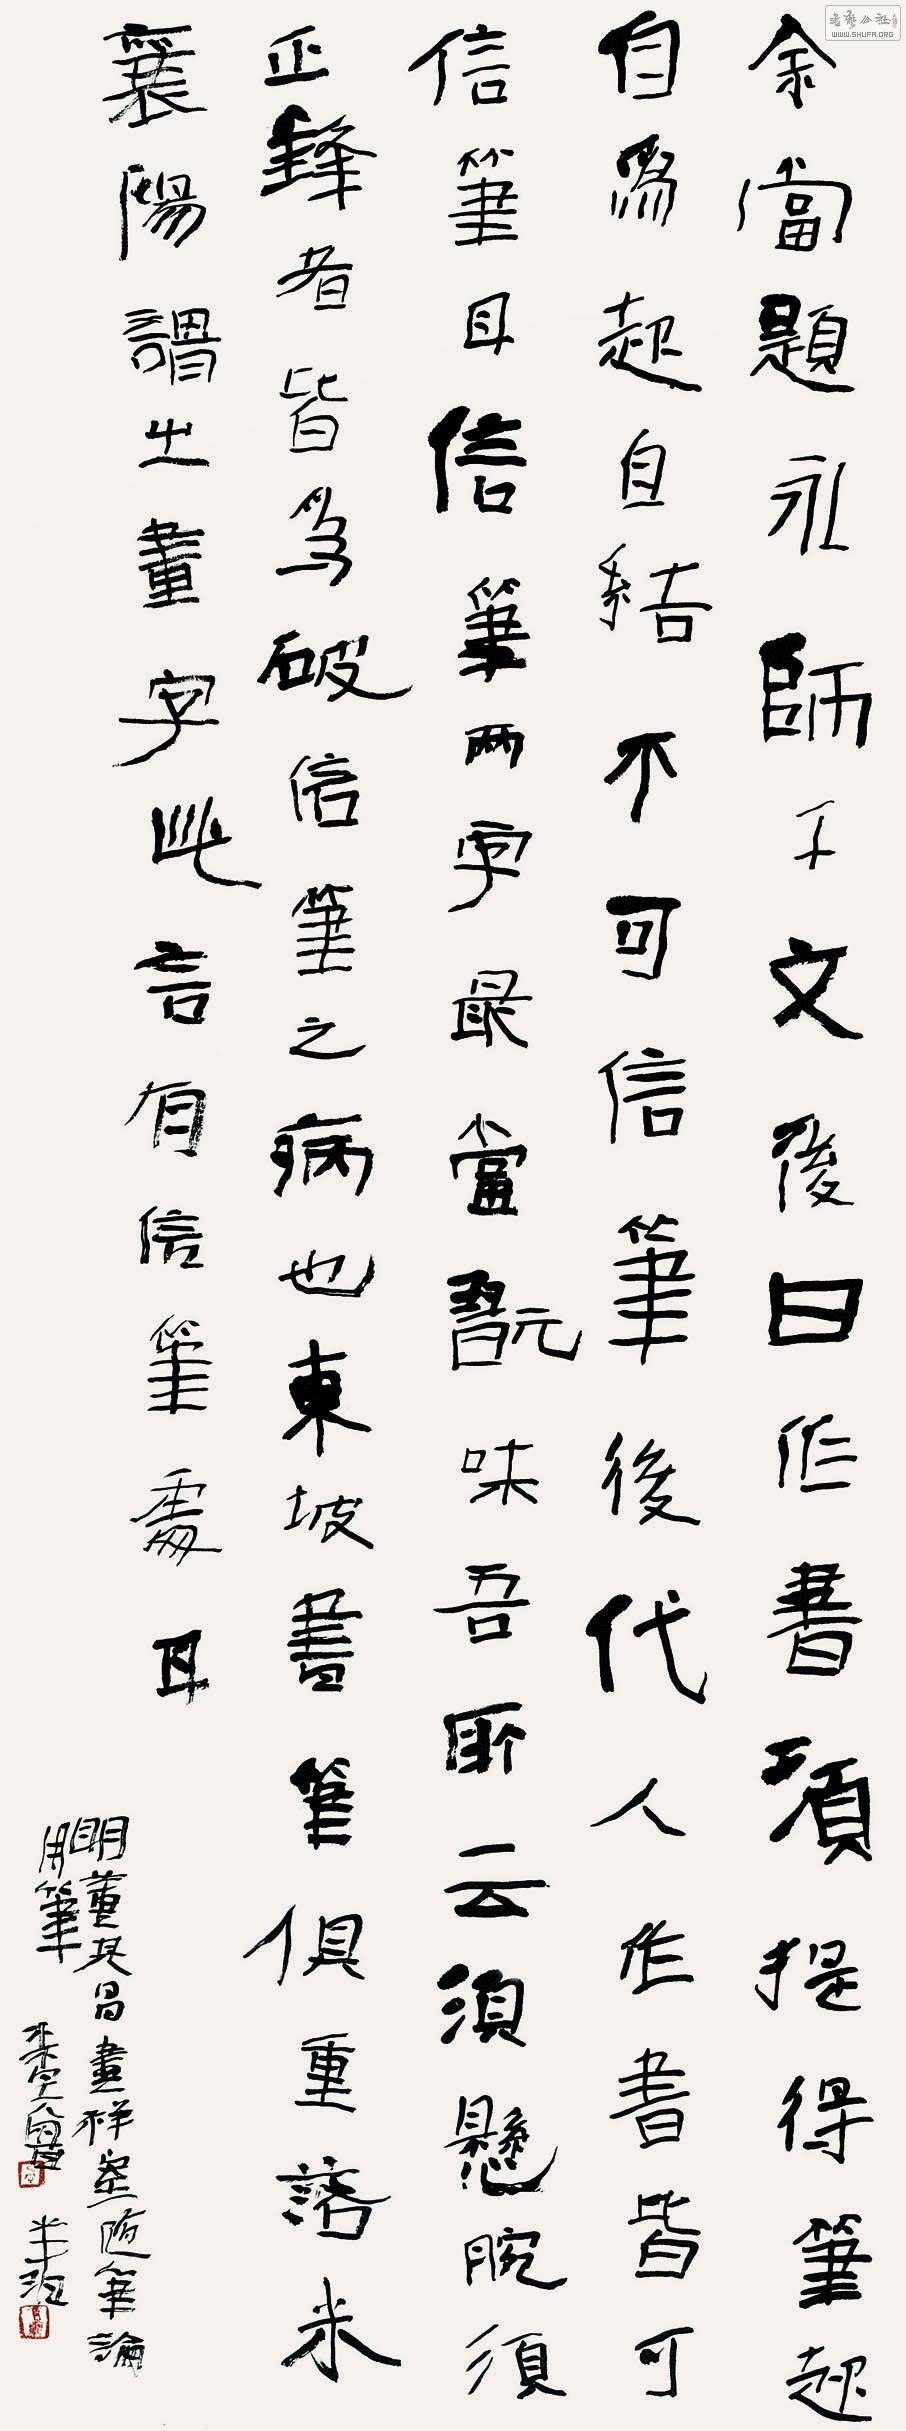 余當題永師千文後曰作書須提得筆起
自爲起自結不可信筆後代人作書皆可
信筆耳信筆兩字最當翫味吾所云須懸腕須
正鋒者皆爲破信筆之病也東坡書筆俱重落米
襄陽謂之畫字此言有信筆處耳
明董其昌畫禅室随筆論
用筆
書藝公社
WWW.SHUFA.ORG